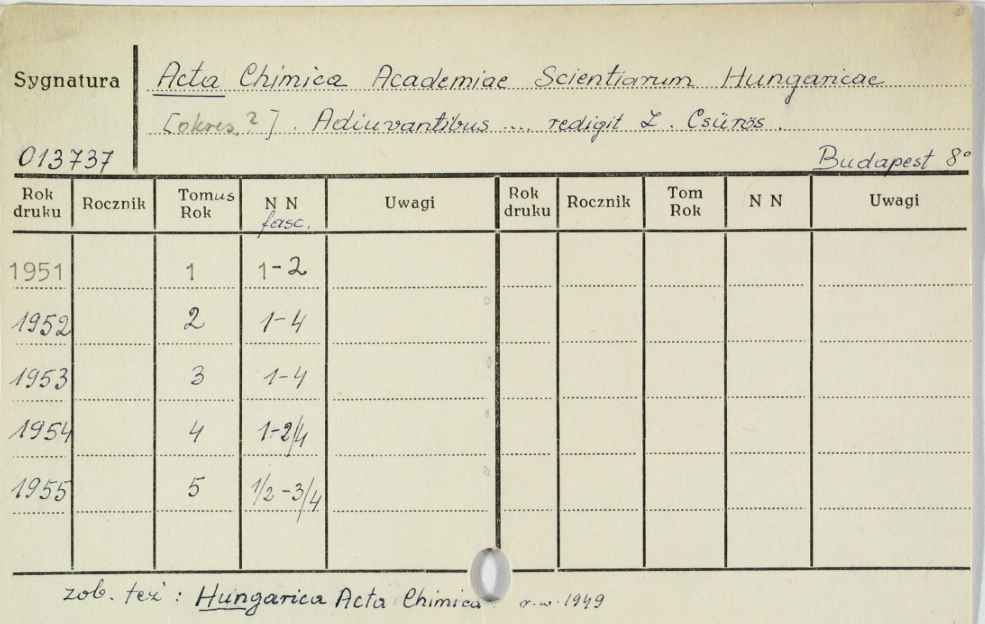 Sygnatura Acta Chimica Academiae Scientiarum Hungaricae
[okres ?]. Adiuvantibus ... redigit Z. Csürös.
013737 Budapest 8°
Rok druku Rocznik Tomus Rok N N fasc. Uwagi Rok druku Rocznik Tom Rok N N Uwagi
1951 1 1-2
1952 2 1-4
1953 3 1-4
1954 4 1-2/4
1955 5 1/2-3/4
zob. też : Hungarica Acta Chimica r.w. 1949